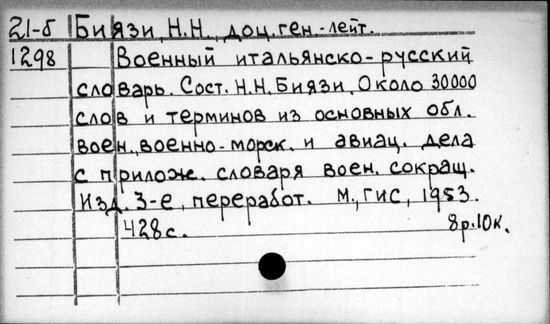 21-б Биязи, Н.Н., доц. ген.-лейт.
1298 Военный итальянско-русский
словарь. Сост. Н.Н. Биязи. Около 30000
слов и терминов из основных обл.
воен., военно-морск. и авиац. дела
с прилож. словаря воен. сокращ.
Изд. 3-е, переработ. М., ГИС, 1953.
428 с. 8р.10к.